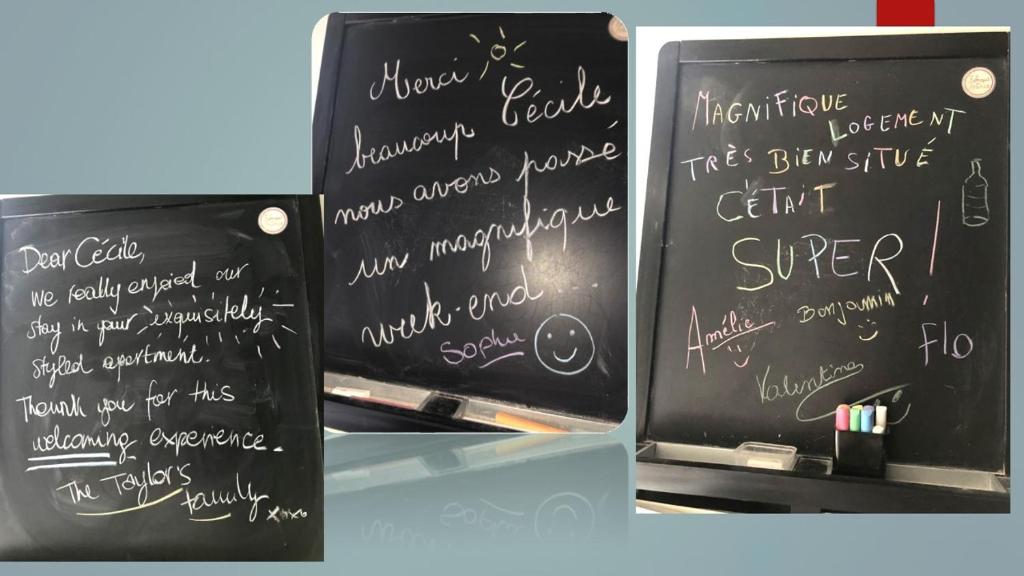 Dear Cécile,
we really enjoied our
stay in your exquisitely
styled apartment.
Thank you for this
welcoming experience.
The Taylor's
family xoxo
Merci
Cécile
beaucoup
nous avons passé
un magnifique
week-end...
Sophie
MAGNIFIQUE
LOGEMENT
TRÈS BIEN SITUÉ
C'ÉTAIT
SUPER !
Amélie
Bonjamin
Flo
Valentine